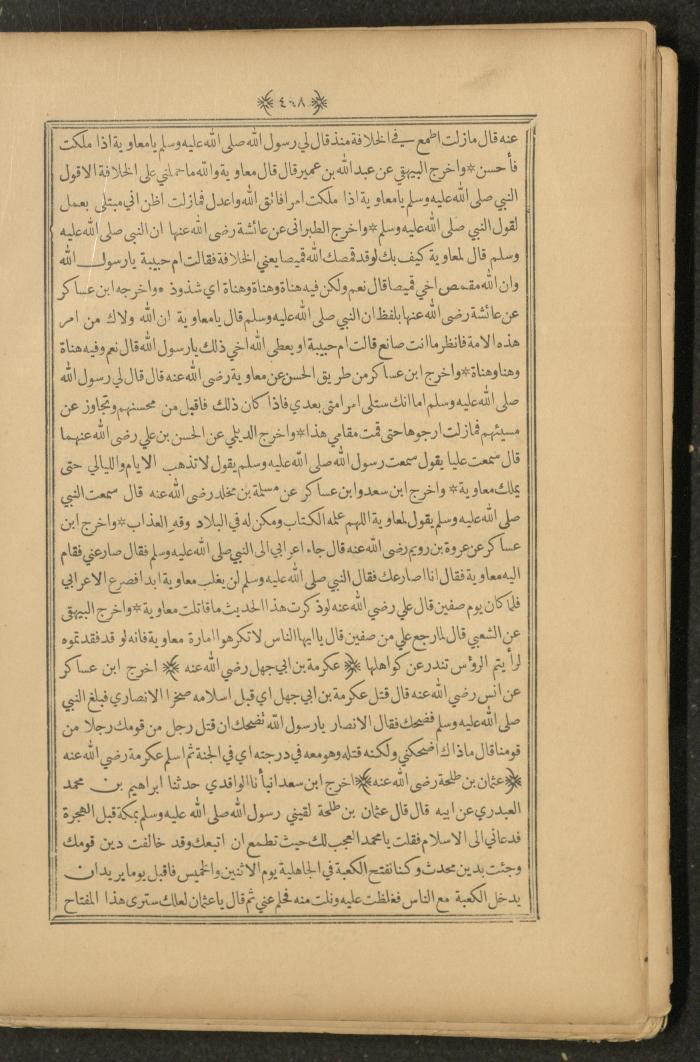 ﴿٤٩٨﴾
عنه قال مازلت اطمع في الخلافة منذ قال لي رسول الله صلى الله عليه وسلم يامعاوية اذا ملكت
فأحسن * واخرج البيهقي عن عبد الله بن عمير قال قال معاوية والله ماحملني على الخلافة الاقول
النبي صلى الله عليه وسلم يامعاوية اذا ملكت امرافاتق الله واعدل فمازلت اظن اني مبتلى بعمل
لقول النبي صلى الله عليه وسلم * واخرج الطبراني عن عائشة رضى الله عنها ان النبي صلى الله عليه
وسلم قال لمعاوية كيف بك لوقد قمصك الله قميصا يعني الخلافة فقالت ام حبيبة يارسول الله
وان الله مقمص اخي قميصا قال نعم ولكن فيه هناة وهناة وهناة اي شذوذ * واخرجه ابن عساكر
عن عائشة رضى الله عنها بلفظ ان النبي صلى الله عليه وسلم قال يامعاوية ان الله ولاك من امر
هذه الامة فانظر ماانت صانع قالت ام حبيبة او يعطى الله اخي ذلك يارسول الله قال نعم وفيه هناة
وهنا وهناة * واخرج ابن عساكر من طريق الحسن عن معاوية رضى الله عنه قال قال لي رسول الله
صلى الله عليه وسلم اما انك ستلى امر امتى بعدي فاذا كان ذلك فاقبل من محسنهم وتجاوز عن
مسيئهم فمازلت ارجوها حتى قمت مقامي هذا * واخرج الديلمي عن الحسن بن علي رضى الله عنهما
قال سمعت عليا يقول سمعت رسول الله صلى الله عليه وسلم يقول لاتذهب الايام والليالي حتى
يملك معاوية * واخرج ابن سعد وابن عساكر عن مسلمة بن مخلد رضى الله عنه قال سمعت النبي
صلى الله عليه وسلم يقول لمعاوية اللهم علمه الكتاب ومكن له في البلاد وقه العذاب * واخرج ابن
عساكر عن عروة بن رويم رضى الله عنه قال جاء اعرابي الى النبي صلى الله عليه وسلم فقال صارعني فقام
اليه معاوية فقال انا اصارعك فقال النبي صلى الله عليه وسلم لن يغلب معاوية ابدا فصرع الاعرابي
فلما كان يوم صفين قال علي رضي الله عنه لو ذكرت هذا الحديث ماقاتلت معاوية * واخرج البيهقى
عن الشعبي قال لما رجع علي من صفين قال ياايها الناس لاتكرهوا امارة معاوية فانه لو قد فقدتموه
لرأيتم الرؤس تندر عن كواهلها ﴿ عكرمة بن ابي جهل رضي الله عنه ﴾ اخرج ابن عساكر
عن انس رضي الله عنه قال قتل عكرمة بن ابي جهل اي قبل اسلامه صخرا الانصاري فبلغ النبي
صلى الله عليه وسلم فضحك فقال الانصار يارسول الله تضحك ان قتل رجل من قومك رجلا من
قومنا قال ماذاك اضحكني ولكنه قتله وهو معه في درجته اي في الجنة ثم اسلم عكرمة رضي الله عنه
﴿ عثمان بن طلحة رضى الله عنه ﴾ اخرج ابن سعد انبأنا الواقدي حدثنا ابراهيم بن محمد
العبدري عن ابيه قال قال عثمان بن طلحة لقيني رسول الله صلى الله عليه وسلم بمكة قبل الهجرة
فدعاني الى الاسلام فقلت يامحمد العجب لك حيث تطمع ان اتبعك وقد خالفت دين قومك
وجئت بدين محدث وكنا نفتح الكعبة في الجاهلية يوم الاثنين والخميس فاقبل يوما يريدان
يدخل الكعبة مع الناس فغلظت عليه ونلت منه فحلم عني ثم قال ياعثمان لعلك سترى هذا المفتاح